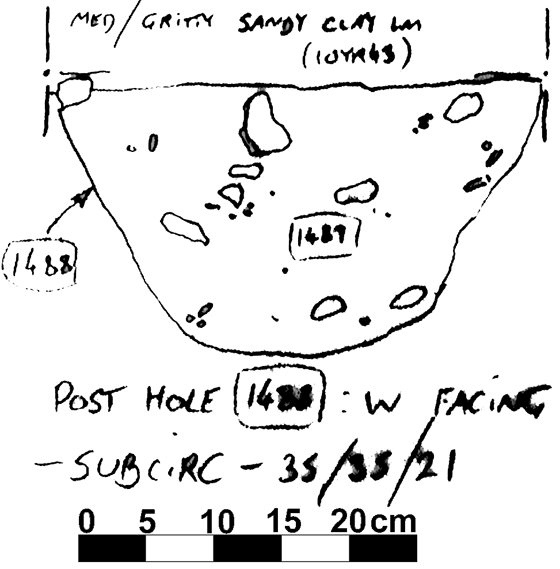 MED/GRITTY SANDY CLAY LM
(10YR43)
1489
1488
POST HOLE 1488 : W FACING
- SUBCIRC - 35/35/21
0 5 10 15 20 cm